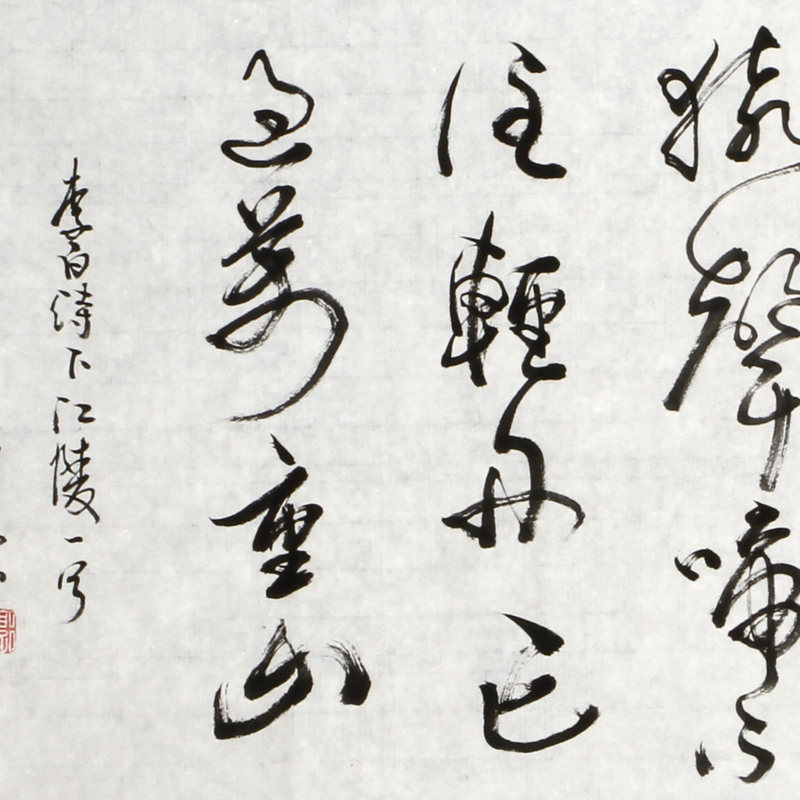 猿聲啼不
住輕舟已
過萬重山
李白詩下江陵一首